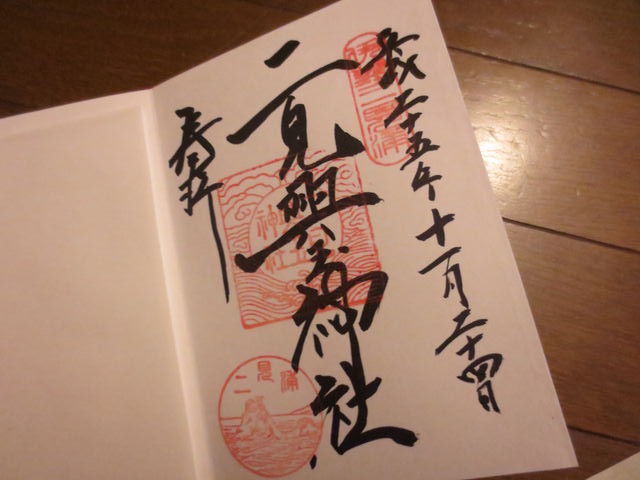 平成二十五年十一月二十四日
伊勢二見浦
二見興玉神社
奉拝
二見浦